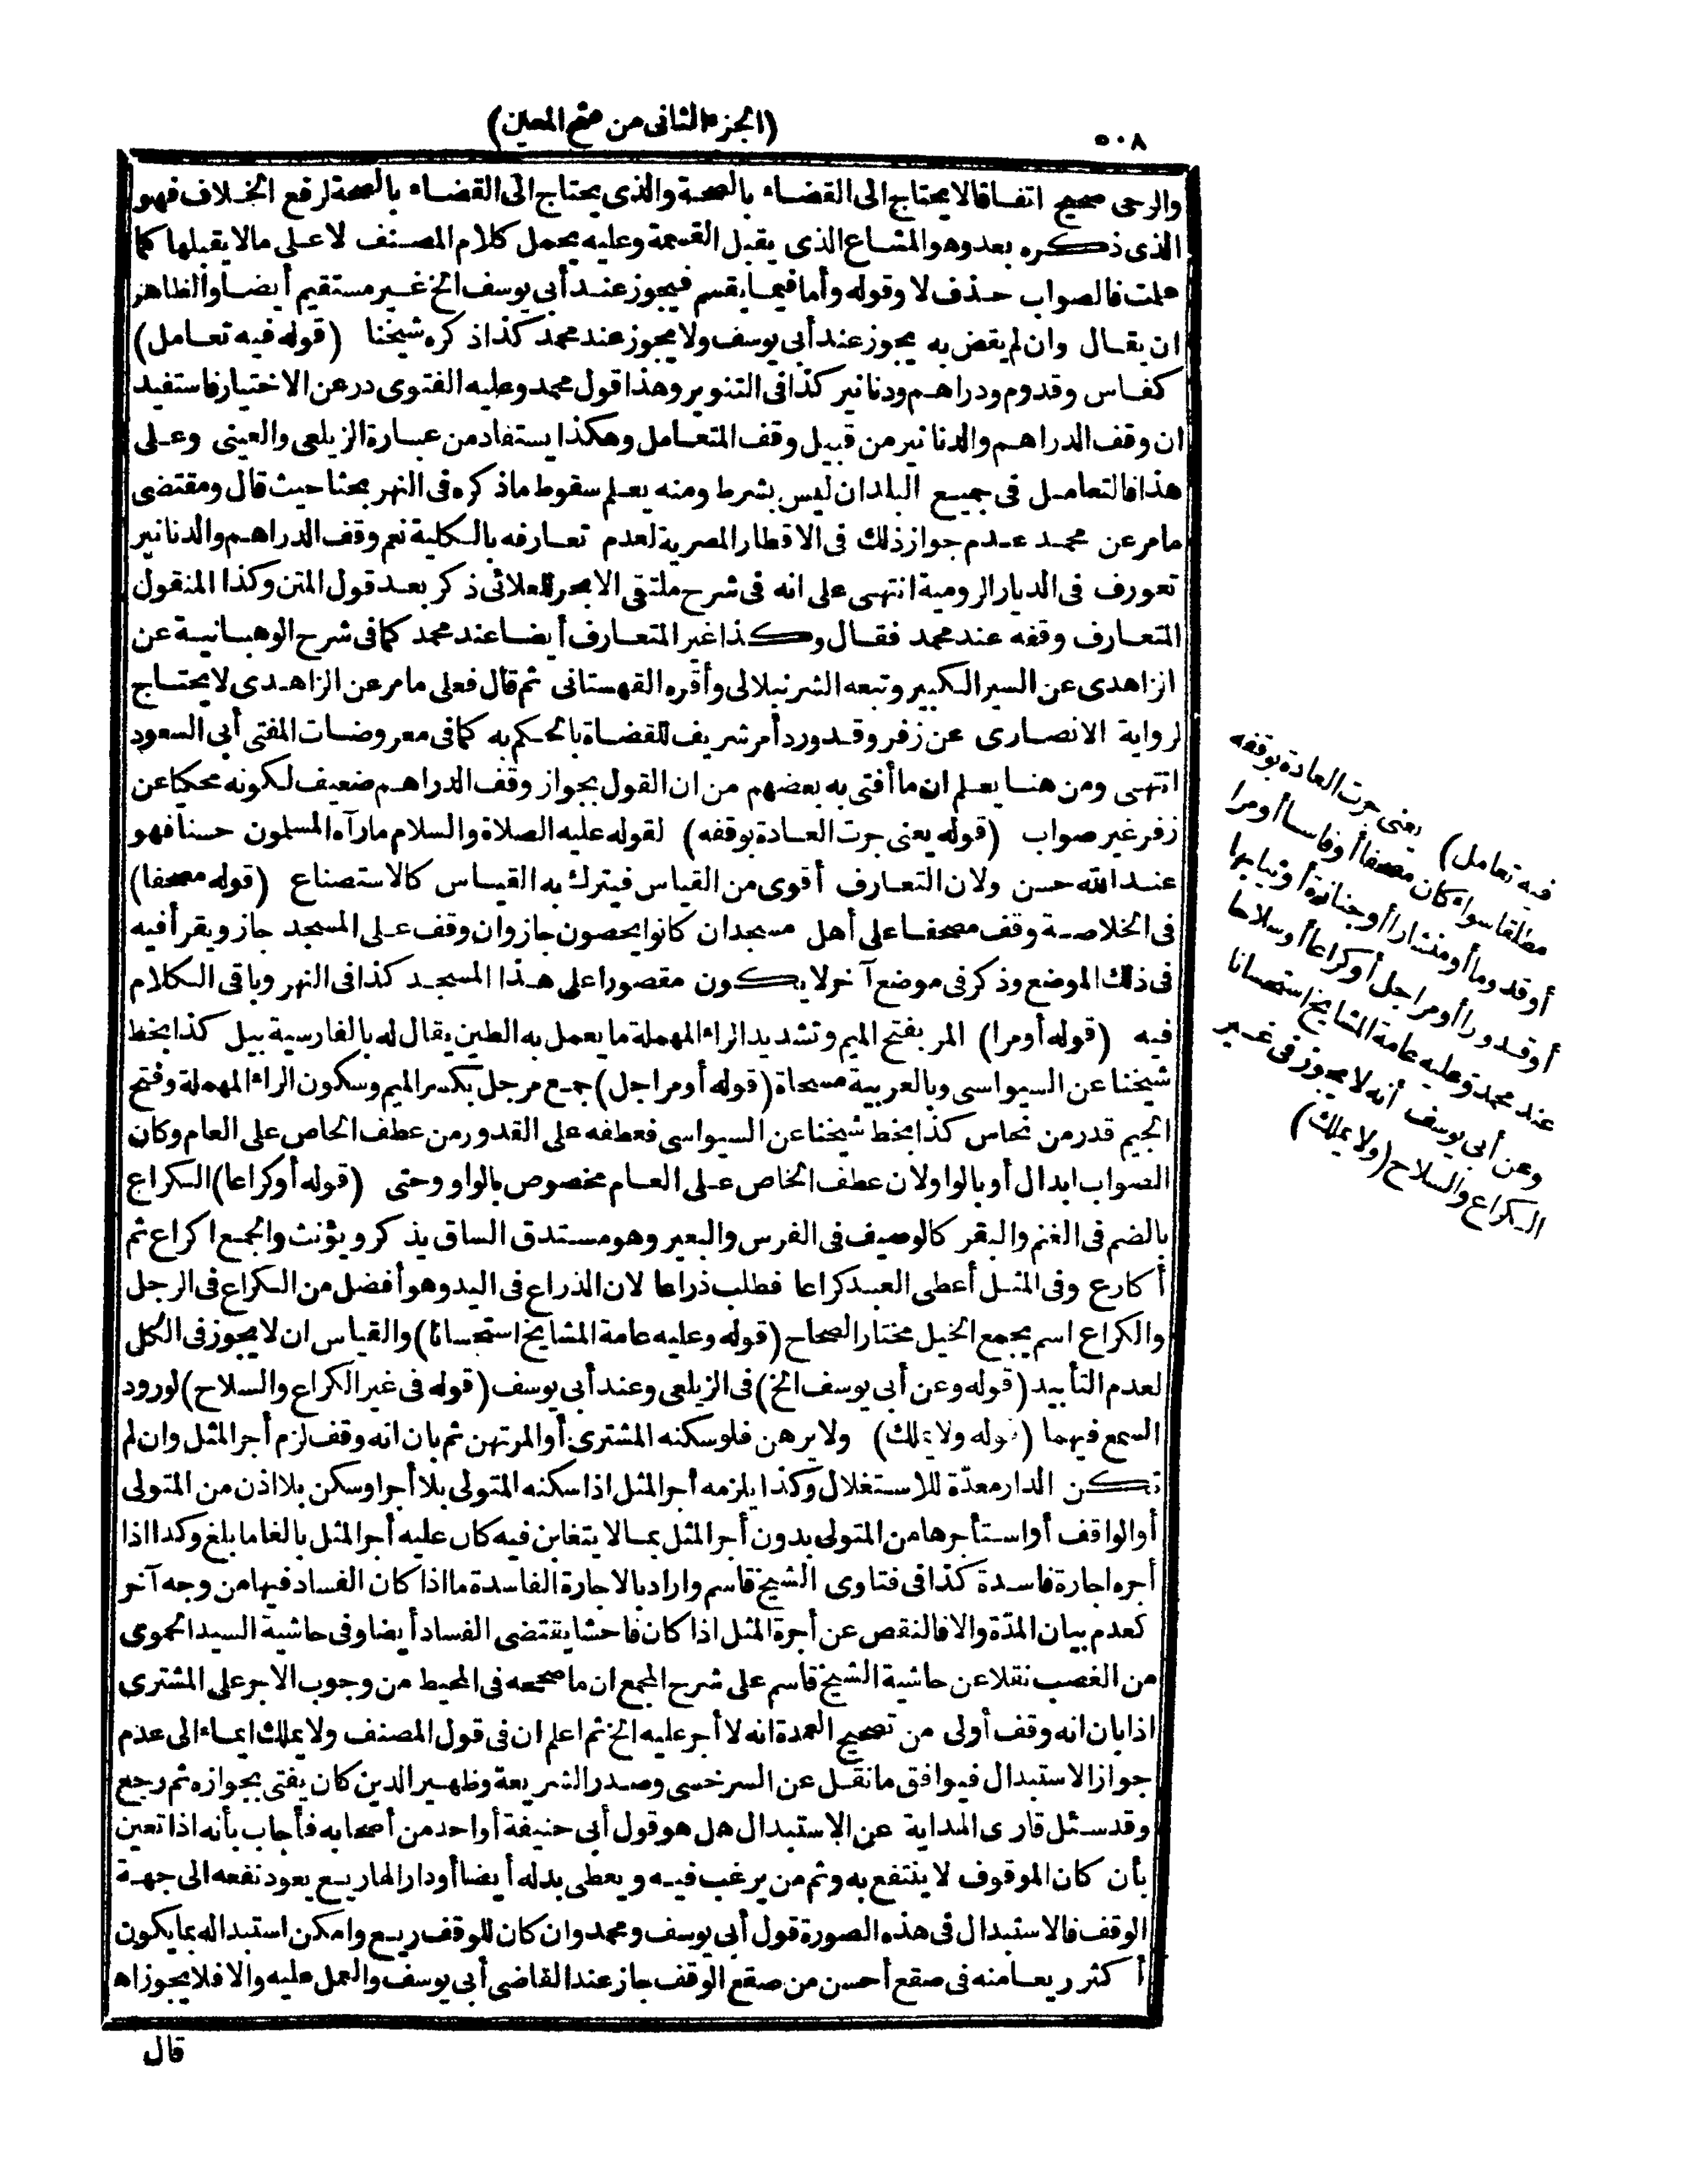 ٥٠٨
(الجزء الثانى من فتح المعين)
والرحى صحيح اتفاقا لا يحتاج الى القضاء بالصحة والذى يحتاج الى القضاء بالصحة لرفع الخلاف فهو
الذى ذكره بعد وهو المشاع الذى يقبل القسمة وعليه يحمل كلام المصنف لا على ما لا يقبلها كما
علمت فالصواب حذف لا وقوله وأما فيما يقسم فيجوز عند أبى يوسف الخ غير مستقيم أيضا والظاهر
ان يقال وان لم يقض به يجوز عند أبى يوسف ولا يجوز عند محمد كذا ذكره شيخنا (قوله فيه تعامل)
كفاس وقدوم ودراهم ودنانير كذا فى التنوير وهذا قول محمد وعليه الفتوى در عن الاختيار فاستفيد
ان وقف الدراهم والدنانير من قبيل وقف المتعامل وهكذا يستفاد من عبارة الزيلعى والعينى وعلى
هذا فالتعامل فى جميع البلدان ليس بشرط ومنه يعلم سقوط ما ذكره فى النهر بحثا حيث قال ومقتضى
ما مر عن محمد عدم جواز ذلك فى الاقطار المصرية لعدم تعارفه بالكلية نعم وقف الدراهم والدنانير
تعورف فى الديار الرومية انتهى على انه فى شرح ملتقى الابحر للعلائى ذكر بعد قول المتن وكذا المنقول
المتعارف وقفه عند محمد فقال وكذا غير المتعارف أيضا عند محمد كما فى شرح الوهبانية عن
الزاهدى عن السير الكبير وتبعه الشرنبلالى وأقره القهستانى ثم قال فعلى ما مر عن الزاهدى لا يحتاج
لرواية الانصارى عن زفر وقد ورد أمر شريف للقضاة بالحكم به كما فى معروضات المفتى أبى السعود
انتهى ومن هنا يعلم ان ما أفتى به بعضهم من ان القول بجواز وقف الدراهم ضعيف لكونه محكيا عن
زفر غير صواب (قوله يعنى جرت العادة بوقفه) لقوله عليه الصلاة والسلام ما رآه المسلمون حسنا فهو
عند الله حسن ولان التعارف أقوى من القياس فيترك به القياس كالاستصناع (قوله مصحفا)
فى الخلاصة وقف مصحفا على أهل مسجد ان كانوا يحصون جاز وان وقف على المسجد جاز ويقرأ فيه
فى ذلك الموضع وذكر فى موضع آخر لا يكون مقصورا على هذا المسجد كذا فى النهر وباقى الكلام
فيه (قوله أو مرا) المر بفتح الميم وتشديد الراء المهملة ما يعمل به الطين يقال له بالفارسية بيل كذا بخط
شيخنا عن السيواسى وبالعربية مسحاة (قوله أو مراجل) جمع مرجل بكسر الميم وسكون الراء المهملة وفتح
الجيم قدر من نحاس كذا بخط شيخنا عن السيواسى فعطفه على القدور من عطف الخاص على العام وكان
الصواب ابدال أو بالواو لان عطف الخاص على العام مخصوص بالواو وحتى (قوله أو كراعا) الكراع
بالضم فى الغنم والبقر كالوصيف فى الفرس والبعير وهو مستدق الساق يذكر ويؤنث والجمع اكراع ثم
أكارع وفى المثل أعطى العبد كراعا فطلب ذراعا لان الذراع فى اليد وهو أفضل من الكراع فى الرجل
والكراع اسم يجمع الخيل مختار الصحاح (قوله وعليه عامة المشايخ استحسانا) والقياس ان لا يجوز فى الكل
لعدم التأبيد (قوله وعن أبى يوسف الخ) فى الزيلعى وعند أبى يوسف (قوله فى غير الكراع والسلاح) لورود
السمع فيهما (قوله ولا يملك) ولا يرهن فلو سكنه المشترى أو المرتهن ثم بان انه وقف لزم أجر المثل وان لم
تكن الدار معدّة للاستغلال وكذا يلزمه أجر المثل اذا سكنه المتولى بلا أجر او سكن بلا اذن من المتولى
أو الواقف أو استأجرها من المتولى بدون أجر المثل بما لا يتغابن فيه كان عليه أجر المثل بالغا ما بلغ وكذا اذا
أجره اجارة فاسدة كذا فى فتاوى الشيخ قاسم واراد بالاجارة الفاسدة ما اذا كان الفساد فيها من وجه آخر
كعدم بيان المدّة والا فالنقص عن أجرة المثل اذا كان فاحشا يقتضى الفساد أيضا وفى حاشية السيد الحموى
من الغصب نقلا عن حاشية الشيخ قاسم على شرح المجمع ان ما صححه فى المحيط من وجوب الاجر على المشترى
اذا بان انه وقف أولى من تصحيح العمدة انه لا أجر عليه الخ ثم اعلم ان فى قول المصنف ولا يملك ايماء الى عدم
جواز الاستبدال فيوافق ما نقل عن السرخسى وصدر الشريعة وظهير الدين كان يفتى بجوازه ثم رجع
وقد سئل قارى الهداية عن الاستبدال هل هو قول أبى حنيفة أو احد من أصحابه فأجاب بأنه اذا تعين
بأن كان الموقوف لا ينتفع به وثم من يرغب فيه ويعطى بدله أيضا أو دارا لها ريع يعود نفعه الى جهة
الوقف فالاستبدال فى هذه الصورة قول أبى يوسف ومحمد وان كان للوقف ريع وامكن استبداله بما يكون
أكثر ريعا منه فى صقع أحسن من صقع الوقف جاز عند القاضى أبى يوسف والعمل عليه والا فلا يجوز اه
قال
فيه تعامل) يعنى جرت العادة بوقفه
مطلقا سواء كان مصحفا أو فاسا أو مرا
أو قدوما أو منشارا أو جنازة أو ثيابها
أو قدورا أو مراجل أو كراعا أو سلاحا
عند محمد وعليه عامة المشايخ استحسانا
وعن أبى يوسف أنه لا يجوز فى غير
الكراع والسلاح (ولا يملك)